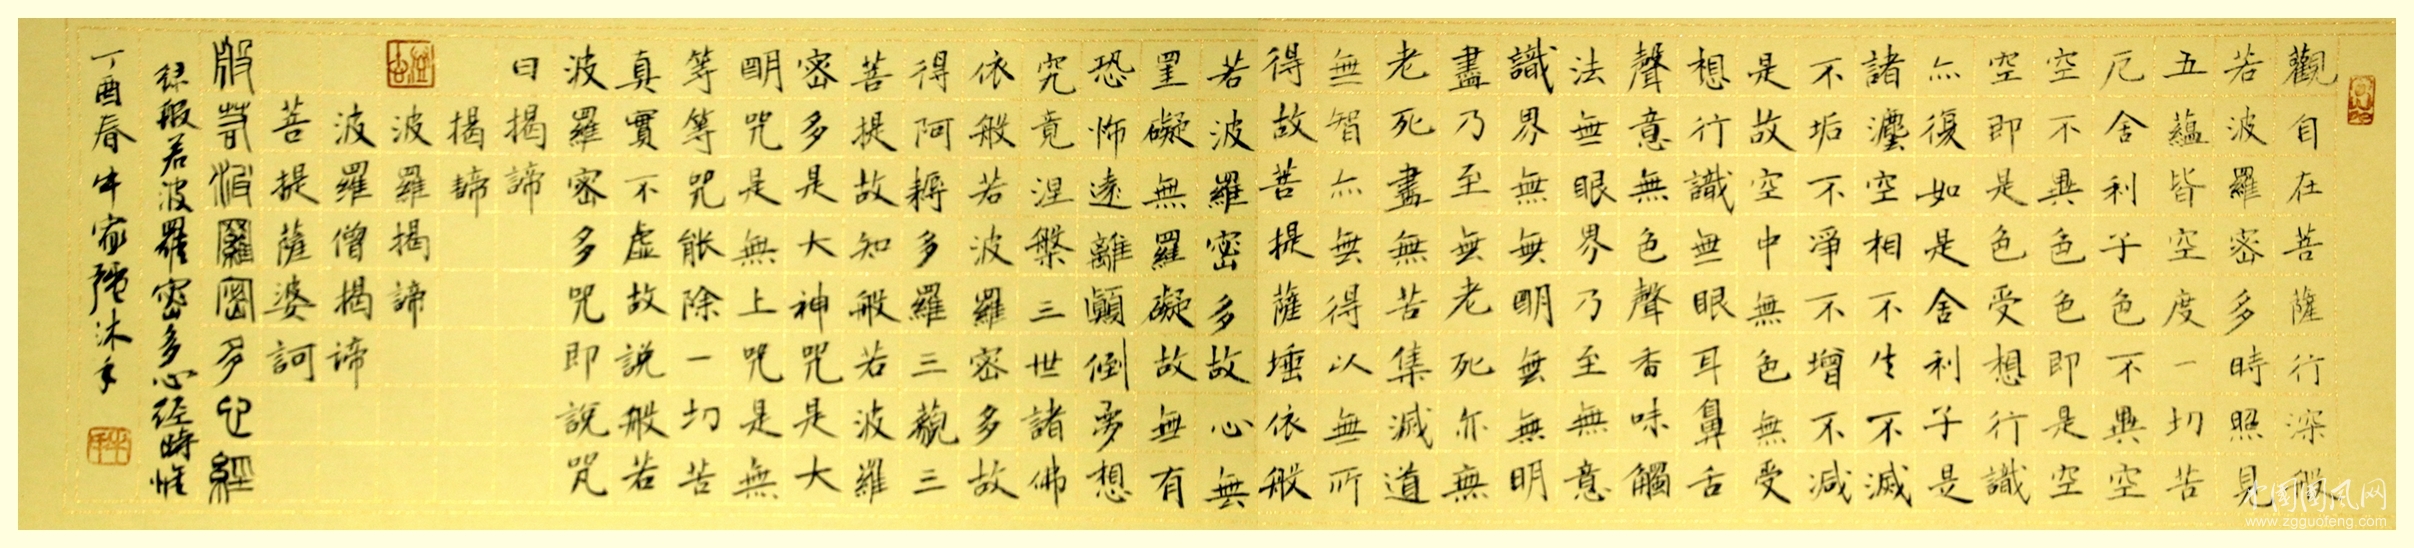 觀自在菩薩行深般
若波羅密多時照見
五蘊皆空度一切苦
厄舍利子色不異空
空不異色色即是空
空即是色受想行識
亦復如是舍利子是
諸灋空相不生不滅
不垢不淨不增不減
是故空中無色無受
想行識無眼耳鼻舌
聲意無色聲香味觸
法無眼界乃至無意
識界無無明無無明
盡乃至無老死亦無
老死盡無苦集滅道
無智亦無得以無所
得故菩提薩埵依般
若波羅密多故心無
罣礙無羅礙故無有
恐怖遠離顛倒夢想
究竟涅槃三世諸佛
依般若波羅密多故
得阿耨多羅三藐三
菩提故知般若波羅
密多是大神咒是大
明咒是無上咒是無
等等咒能除一切苦
真實不虛故說般若
波羅密多咒即說咒
曰揭諦
揭諦
波羅揭諦
波羅僧揭諦
菩提薩婆訶
般若波羅密多心經
録般若波羅密多心经時惟
丁酉春牛家强沐手
中国国风网
www.zgguofeng.com